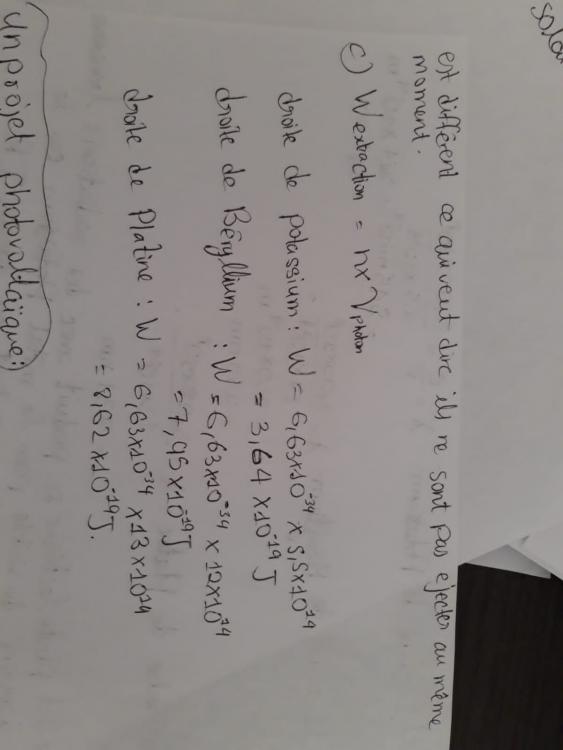 est différent ce qui veut dire ils ne sont pas ejecter au même
moment.
c) W extraction = h x ν photon
droite de potassium : W = 6,63x10^-34 x 5,5x10^14
= 3,64 x10^-19 J
droite de Béryllium : W = 6,63x10^-34 x 12x10^14
= 7,95 x10^-19 J
droite de Platine : W = 6,63x10^-34 x 13x10^14
= 8,62 x10^-19 J.
Un projet photovoltaïque :